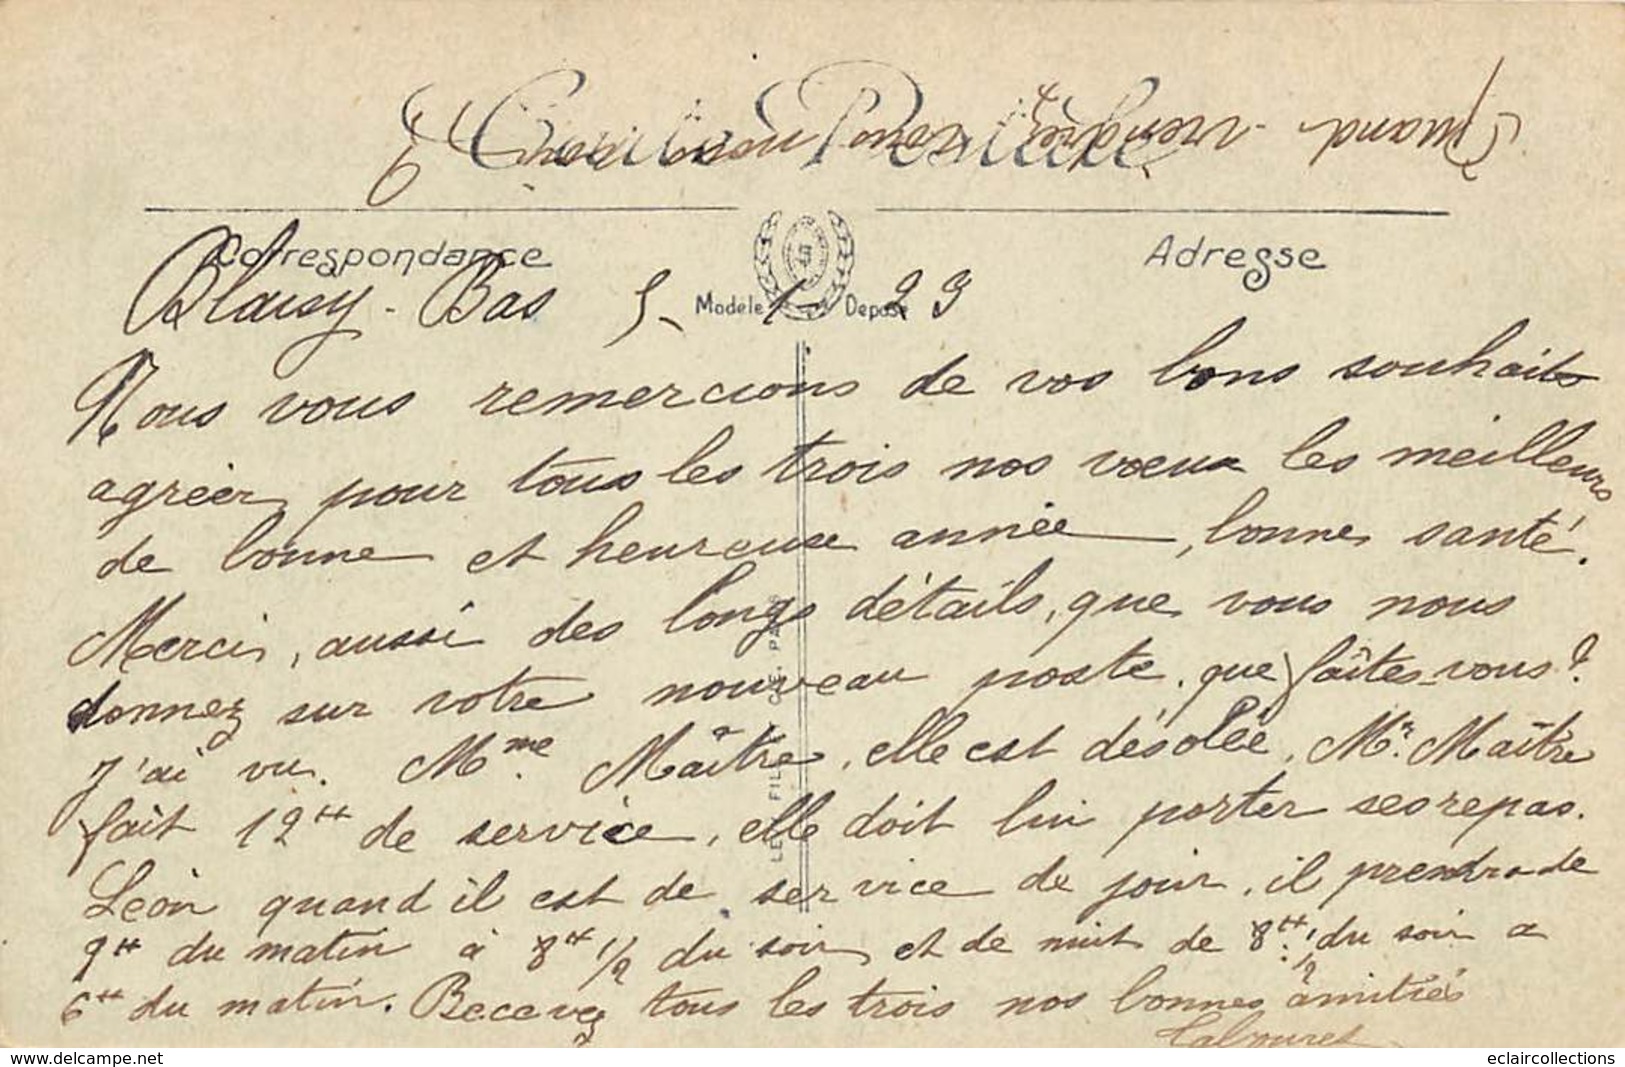 Carte Postale
Quand viendrez
Correspondance
Adresse
Modèle Déposé
Blaisy-Bas 5-1-23
Nous vous remercions de vos bons souhaits
agréer pour tous les trois nos voeux les meilleurs
de bonne et heureuse année, bonne santé.
Merci, aussi des longs détails, que vous nous
donnez sur votre nouveau poste, que faites-vous?
J'ai vu Mme Maître, elle est désolée, Mr Maître
fait 12 H de service, elle doit lui porter ses repas.
Léon quand il est de service de jour, il prendra de
9 H du matin à 8 H 1/2 du soir et de nuit de 8 H 1/2 du soir a
6 H du matin. Recevez tous les trois nos bonnes amitiés
LE FIL CIE. PARIS
delcampe.net
eclaircollections